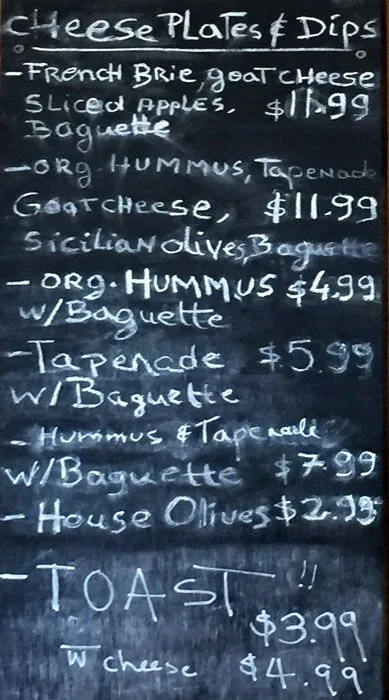 CHeese PLaTes & Dips
- FRENCH BRie, goaT CHeese
SLiced APPLes, $11.99
Baguette
- ORg. HUMMUS, Tapenade
GoaTCHeese, $11.99
SiciLiaN oLives, Baguette
- ORg. HUMMUS $4.99
w/Baguette
- Tapenade $5.99
w/Baguette
- Hummus & Tapenade
w/Baguette $7.99
- House Olives $2.99
- TOAST !!
$3.99
w cheese $4.99